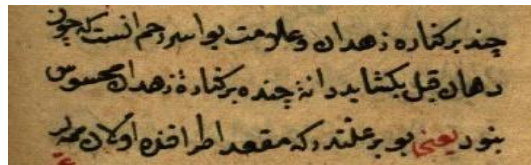 چند برکناره زهدان و علامت بواسیر رحم انست که چون
دهان قبل بکشاید دانهٔ چنده برکنارهٔ زهدان محسوس
بنود یعنی بو برعلتدر که مقعد اطرافنده اولان